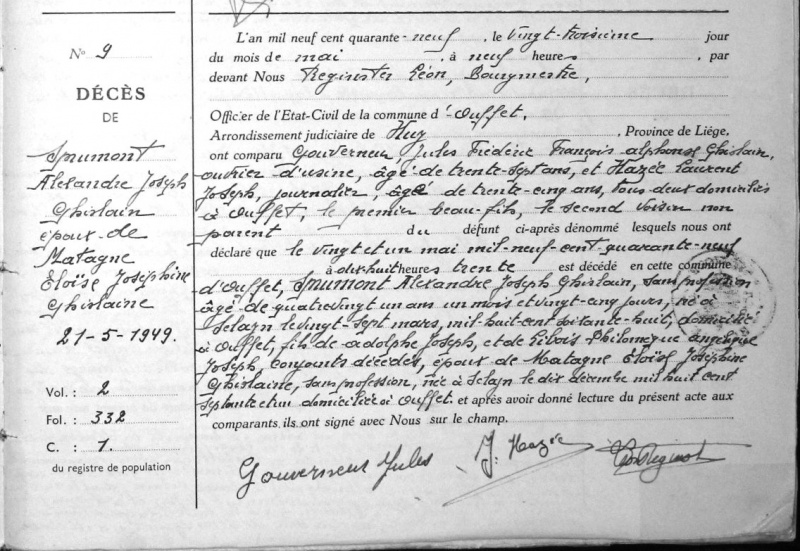 N° 9
DÉCÈS
DE
Spumont
Alexandre Joseph
Ghislain
époux de
Matagne
Eloïse Joséphine
Ghislaine
21-5-1949.
Vol. : 2
Fol. : 332
C. : 1.
du registre de population
L'an mil neuf cent quarante-neuf, le vingt-troisième jour
du mois de mai, à neuf heures, par
devant Nous Reginster Léon, Bourgmestre,
Officier de l'Etat-Civil de la commune d'Ouffet.
Arrondissement judiciaire de Huy, Province de Liége.
ont comparu Gouverneur, Jules Frédéric François alphonse Ghislain,
ouvrier d'usine, âgé de trente-sept ans, et Hazée Laurent
Joseph, journalier, âgé de trente-cinq ans, tous deux domiciliés
à Ouffet, le premier beau-fils, le second voisin non
parent du défunt ci-après dénommé lesquels nous ont
déclaré que le vingt et un mai mil-neuf-cent-quarante-neuf
à dix huit heures trente est décédé en cette commune
d'Ouffet, Spumont Alexandre Joseph Ghislain, sans profession
âgé de quatrevingt un ans un mois et vingt-cinq jours, né à
Sclayn le vingt-sept mars, mil huit cent soixante-huit, domicilié
à Ouffet, fils de adolphe Joseph, et de Libois Philomène angélique
Joseph, conjoints décédés, époux de Matagne Eloïse Joséphine
Ghislaine, sans profession, née à Sclayn le dix décembre mil huit cent
septante et un domiciliée à Ouffet. et après avoir donné lecture du présent acte aux
comparants, ils ont signé avec Nous sur le champ.
Gouverneur Jules J. Hazée